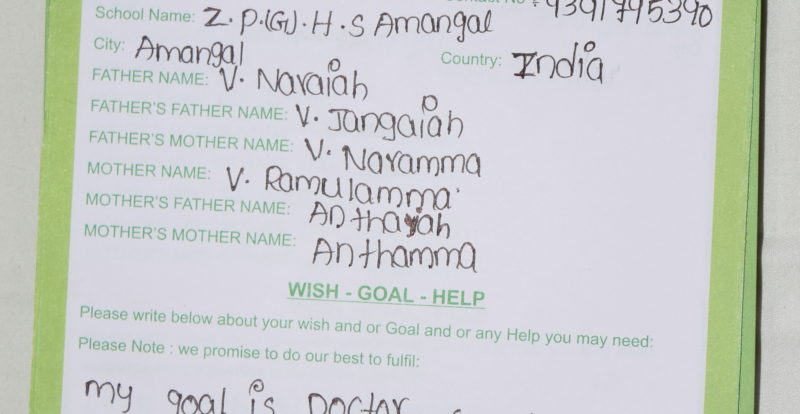 School Name: Z.P.(G).H.S Amangal
City: Amangal Country: India
FATHER NAME: V. Naraiah
FATHER'S FATHER NAME: V. Jangaiah
FATHER'S MOTHER NAME: V. Naramma
MOTHER NAME: V. Ramulamma
MOTHER'S FATHER NAME: Anthaiah
MOTHER'S MOTHER NAME: Anthamma
WISH - GOAL - HELP
Please write below about your wish and or Goal and or any Help you may need:
Please Note : we promise to do our best to fulfil:
my goal is Doctor